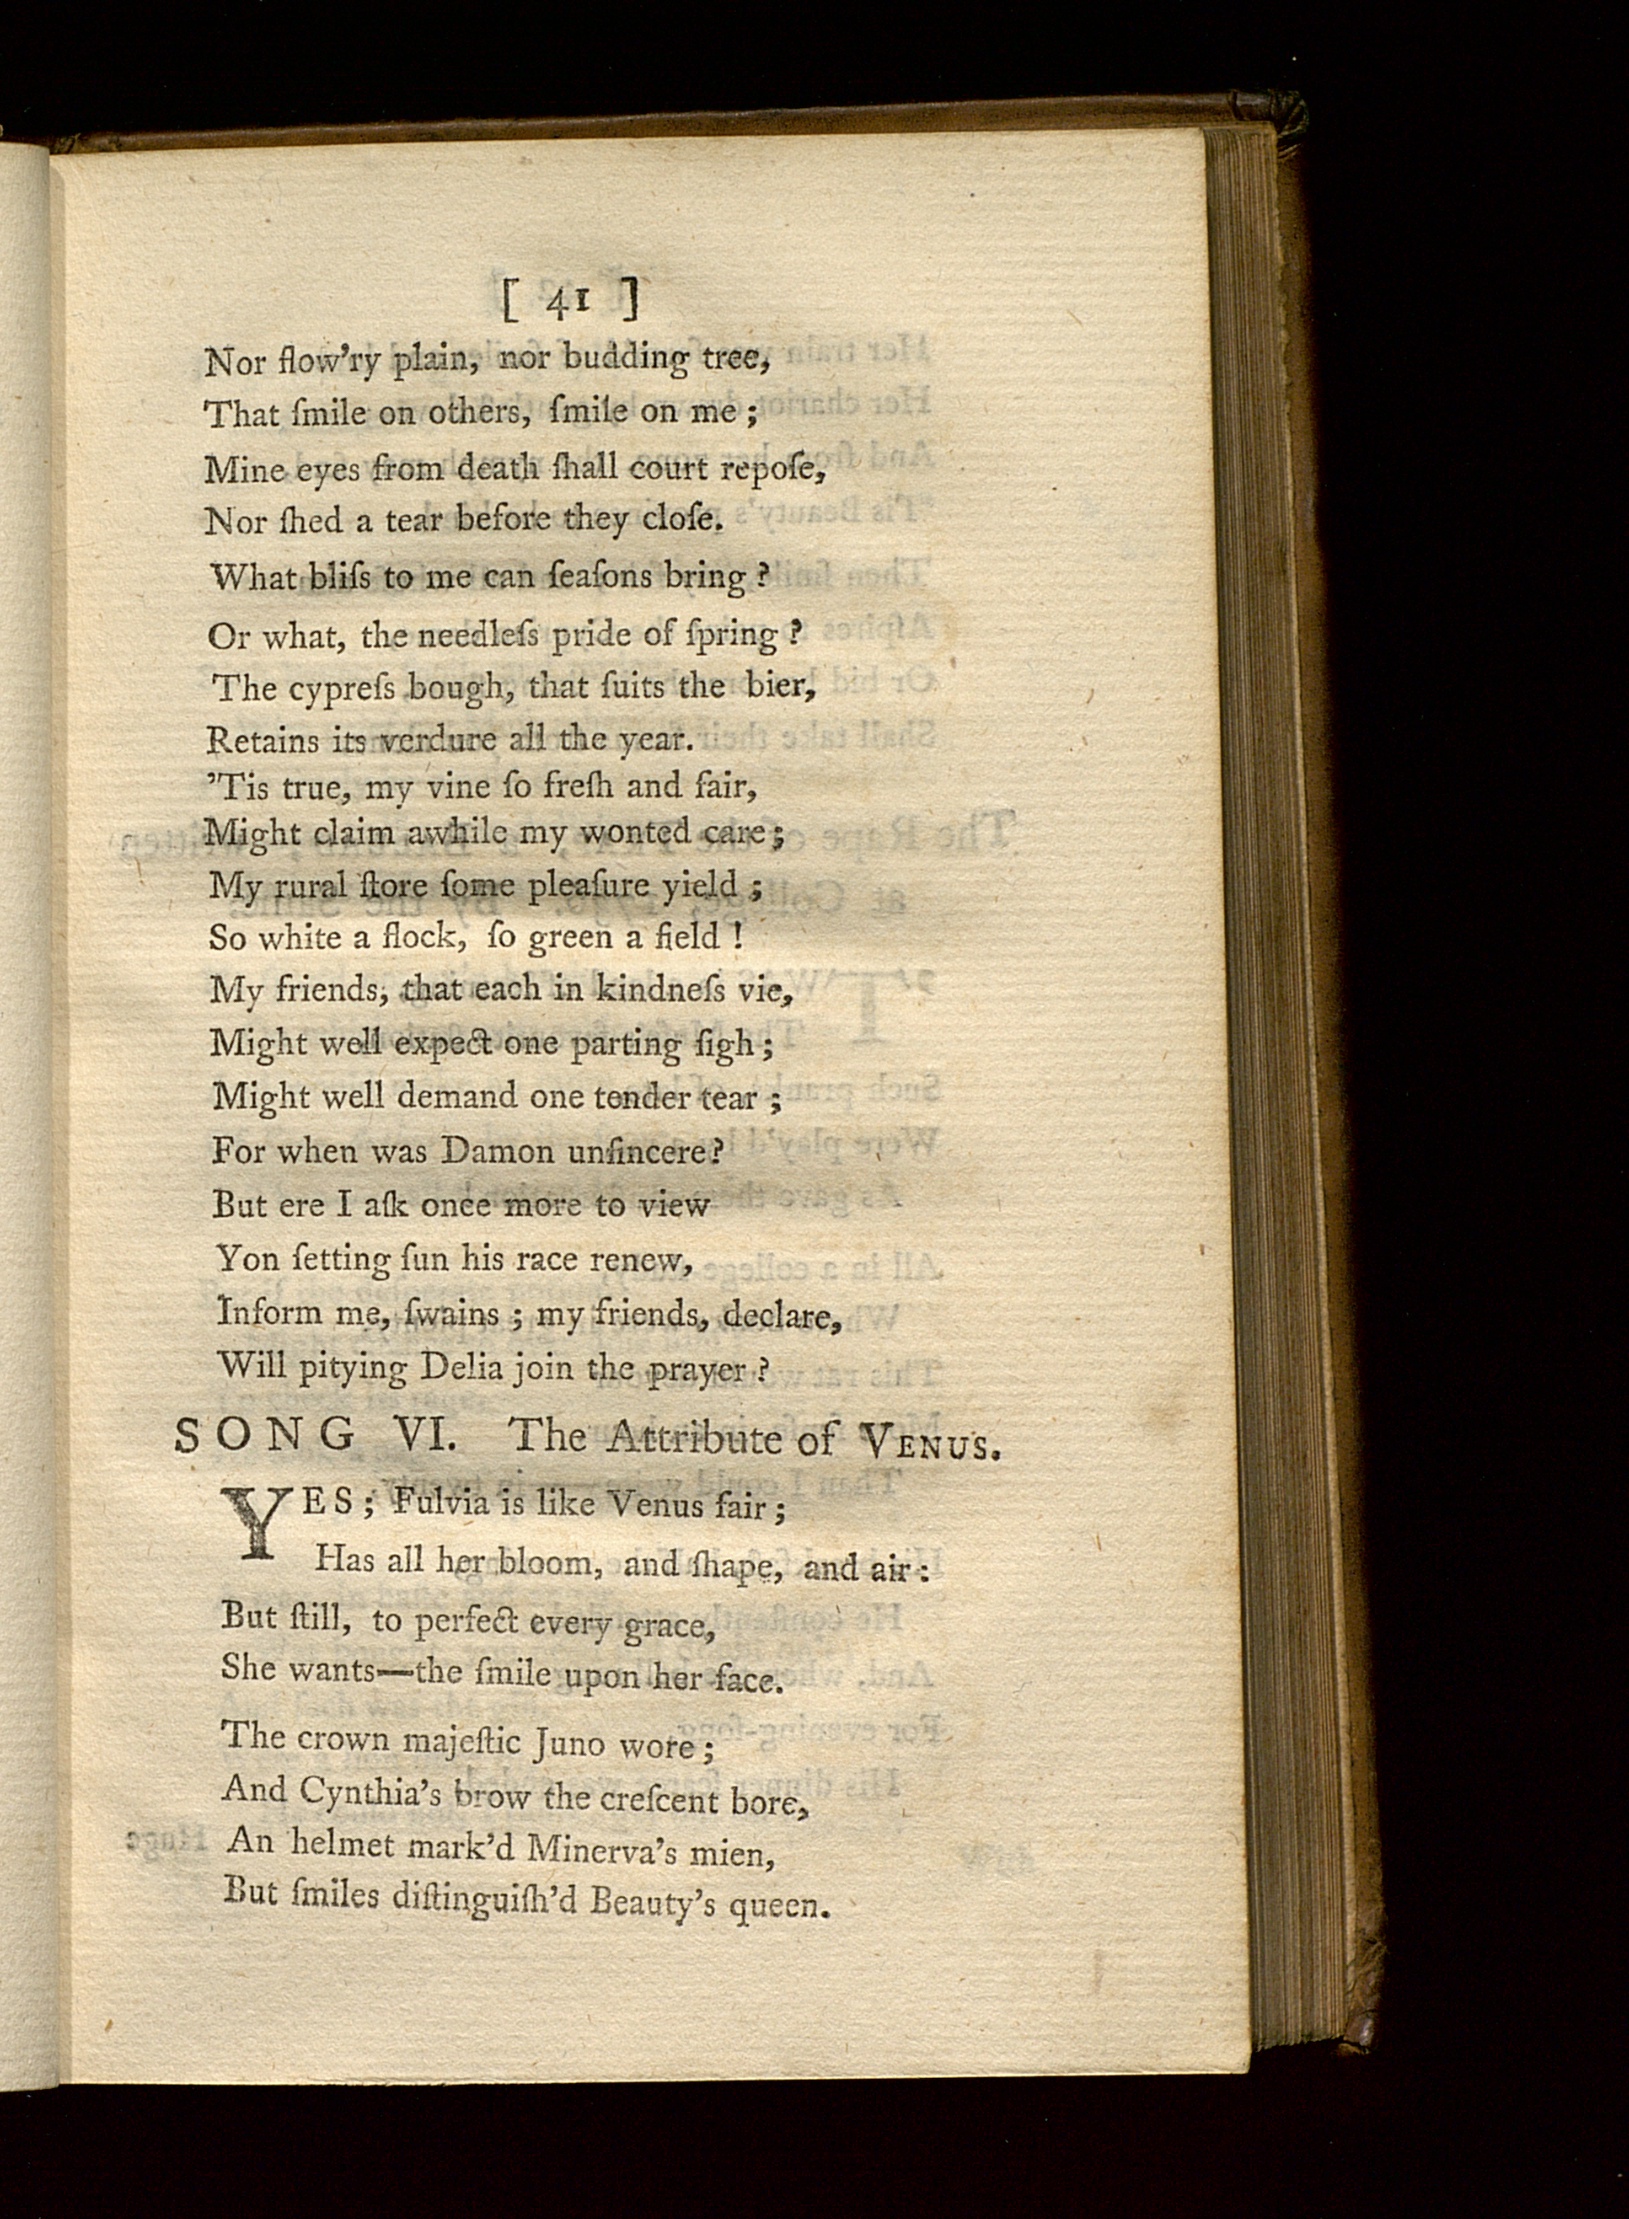 [ 41 ]
Nor flow'ry plain, nor budding tree,
That ſmile on others, ſmile on me ;
Mine eyes from death ſhall court repoſe,
Nor ſhed a tear before they cloſe.
What bliſs to me can ſeaſons bring ?
Or what, the needleſs pride of ſpring ?
The cypreſs bough, that ſuits the bier,
Retains its verdure all the year.
'Tis true, my vine ſo freſh and fair,
Might claim awhile my wonted care ;
My rural ſtore ſome pleaſure yield ;
So white a flock, ſo green a field !
My friends, that each in kindneſs vie,
Might well expect one parting ſigh ;
Might well demand one tender tear ;
For when was Damon unſincere ?
But ere I aſk once more to view
Yon ſetting ſun his race renew,
Inform me, ſwains ; my friends, declare,
Will pitying Delia join the prayer ?
SONG VI. The Attribute of VENUS.
YES ; Fulvia is like Venus fair ;
Has all her bloom, and ſhape, and air :
But ſtill, to perfect every grace,
She wants—the ſmile upon her face.
The crown majeſtic Juno wore ;
And Cynthia's brow the creſcent bore,
An helmet mark'd Minerva's mien,
But ſmiles diſtinguiſh'd Beauty's queen.